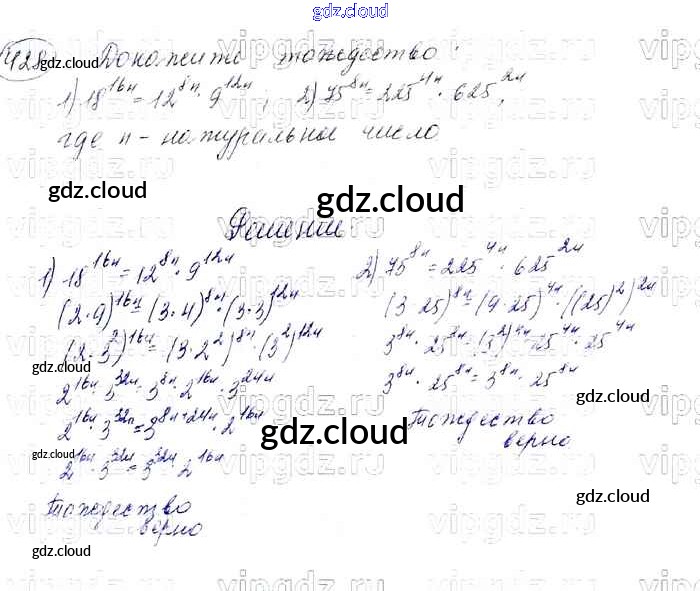 gdz.cloud
428 Докажите тождество:
1) 18^16n = 12^8n · 9^12n; 2) 75^8n = 225^4n · 625^2n,
где n - натуральное число
gdz.cloud
gdz.cloud
Решение
1) 18^16n = 12^8n · 9^12n
(2·9)^16n = (3·4)^8n · (3·3)^12n
(2·3^2)^16n = (3·2^2)^8n · (3^2)^12n
2^16n · 3^32n = 3^8n · 2^16n · 3^24n
2^16n · 3^32n = 3^8n+24n · 2^16n
2^16n · 3^32n = 3^32n · 2^16n
Тождество
верно
2) 75^8n = 225^4n · 625^2n
(3·25)^8n = (9·25)^4n · ((25)^2)^2n
3^8n · 25^8n = (3^2)^4n · 25^4n · 25^4n
3^8n · 25^8n = 3^8n · 25^8n
Тождество
верно
gdz.cloud
gdz.cloud
gdz.cloud
gdz.cloud
gdz.cloud
vipgdz.ru